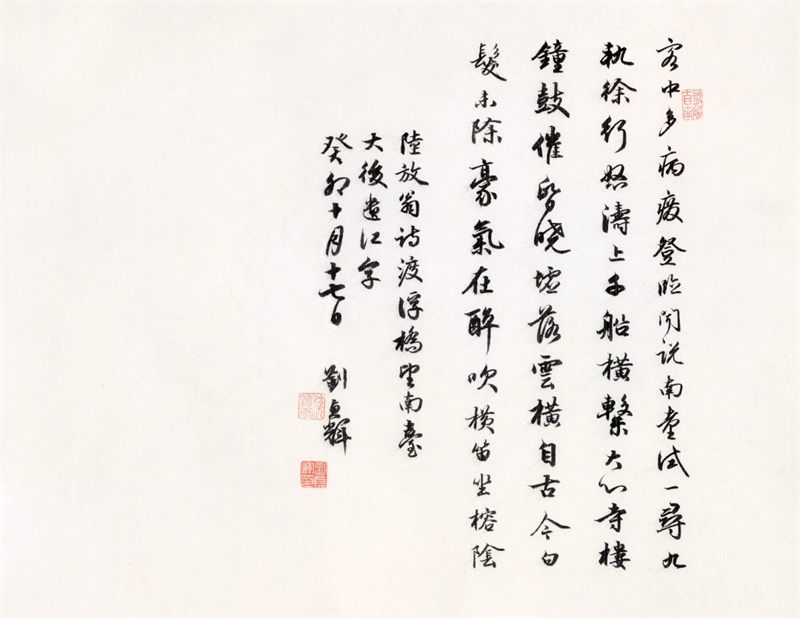 客中多病廢登臨聞説南臺试一尋九
軌徐行怒濤上千船橫繫大心寺樓
鐘鼓催昏曉墟落雲橫自古今白
髮未除豪氣在醉吹橫笛坐榕陰
陸放翁诗渡浮橋至南臺
大後遺江字
癸卯十月十七日 劉輝